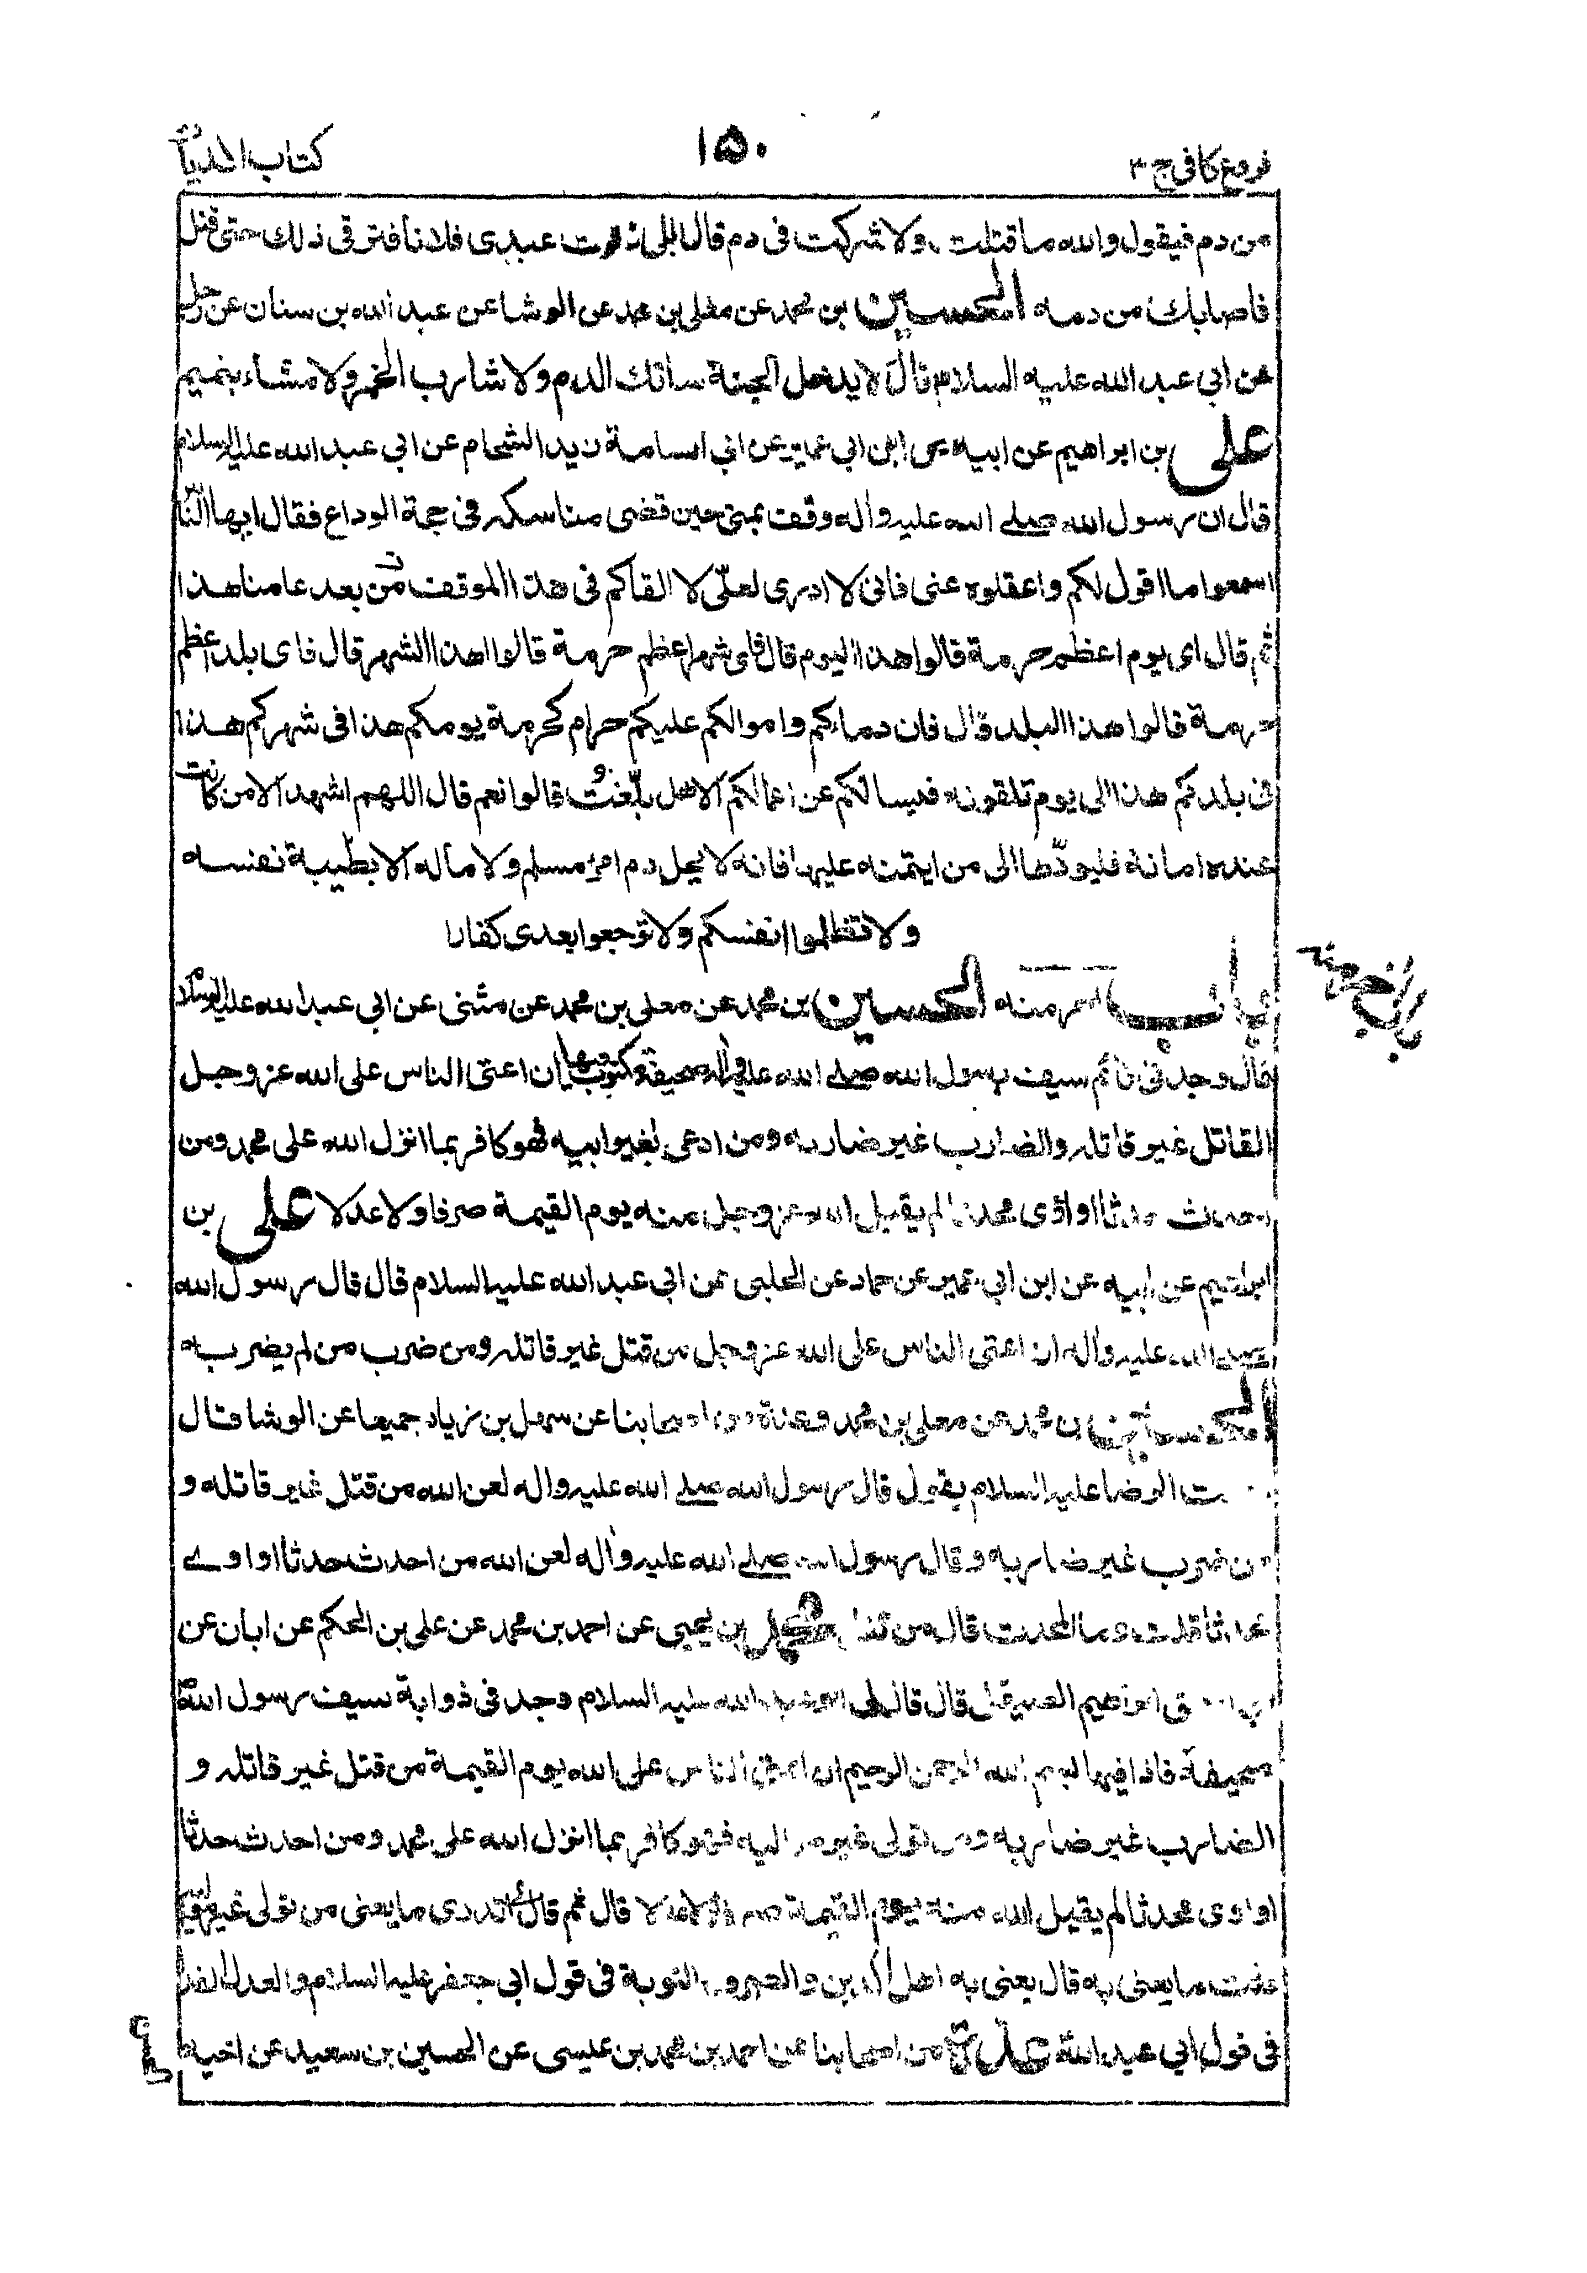 فروع كافى ج ٣
١٥٠
كتاب الديات
من دم فيقول والله ما قتلت ولا شركت فى دم قال بلى ذكرت عبدى فلانا فترقى ذلك حتى قتل
فاصابك من دمه الحسين بن محمد عن معلى بن محمد عن الوشا عن عبد الله بن سنان عن رجل
عن ابى عبد الله عليه السلام قال لا يدخل الجنة سافك الدم ولا شارب الخمر ولا مشاء بنميم
على بن ابراهيم عن ابيه عن ابن ابى عمير عن ابى اسامة زيد الشحام عن ابى عبد الله عليه السلام
قال ان رسول الله صلى الله عليه واله وقف بمنى حين قضى مناسكه فى حجة الوداع فقال ايها الناس
اسمعوا ما اقول لكم واعقلوه عنى فانى لا ادرى لعلّى لا القاكم فى هذا الموقف من بعد عامنا هذا
ثم قال اى يوم اعظم حرمة قالوا هذا اليوم قال فاى شهر اعظم حرمة قالوا هذا الشهر قال فاى بلد اعظم
حرمة قالوا هذا البلد قال فان دماءكم واموالكم عليكم حرام كحرمة يومكم هذا فى شهركم هذا
فى بلدكم هذا الى يوم تلقونه فيسالكم عن اعمالكم الا هل بلّغت قالوا نعم قال اللهم اشهد الا من كانت
عنده امانة فليؤدّها الى من ايتمنه عليها فانه لا يحل دم امرء مسلم ولا ماله الا بطيبة نفسه
ولا تظلموا انفسكم ولا ترجعوا بعدى كفارا
باب اخر منه
باب اخر منه الحسين بن محمد عن معلى بن محمد عن مثنى عن ابى عبد الله عليه السلام
قال وجد فى قائم سيف رسول الله صلى الله عليه واله صحيفة مكتوب فيها ان اعتى الناس على الله عز وجل
القاتل غير قاتله والضارب غير ضاربه ومن ادعى لغير ابيه فهو كافر بما انزل الله على محمد ومن
احدث حدثا او اوى محدثا لم يقبل الله عز وجل منه يوم القيمة صرفا ولا عدلا على بن
ابراهيم عن ابيه عن ابن ابى عمير عن حماد عن الحلبى عن ابى عبد الله عليه السلام قال قال رسول الله
صلى الله عليه واله ان اعتى الناس على الله عز وجل من قتل غير قاتله ومن ضرب من لم يضربه
الحسين بن محمد عن معلى بن محمد وعدة من اصحابنا عن سهل بن زياد جميعا عن الوشا قال
سمعت الرضا عليه السلام يقول قال رسول الله صلى الله عليه واله لعن الله من قتل غير قاتله و
من ضرب غير ضاربه وقال رسول الله صلى الله عليه واله لعن الله من احدث حدثا او اوى
محدثا قلت وما المحدث قال من قتل محمد بن يحيى عن احمد بن محمد عن على بن الحكم عن ابان عن
ابى اسحق ابراهيم الصيقل قال قال لى ابو عبد الله عليه السلام وجد فى ذوابة سيف رسول الله
صحيفة فاذا فيها بسم الله الرحمن الرحيم ان اعتى الناس على الله يوم القيمة من قتل غير قاتله و
الضارب غير ضاربه ومن تولى غير مواليه فهو كافر بما انزل الله على محمد ومن احدث حدثا
او اوى محدثا لم يقبل الله منه يوم القيمة صرفا ولا عدلا قال ثم قال اتدرى ما يعنى من تولى غير مواليه
قلت ما يعنى به قال يعنى به اهل الدين والصرف التوبة فى قول ابى جعفر عليه السلام والعدل الفداء
فى قول ابى عبد الله عدة من اصحابنا عن احمد بن محمد بن عيسى عن الحسين بن سعيد عن اخيه